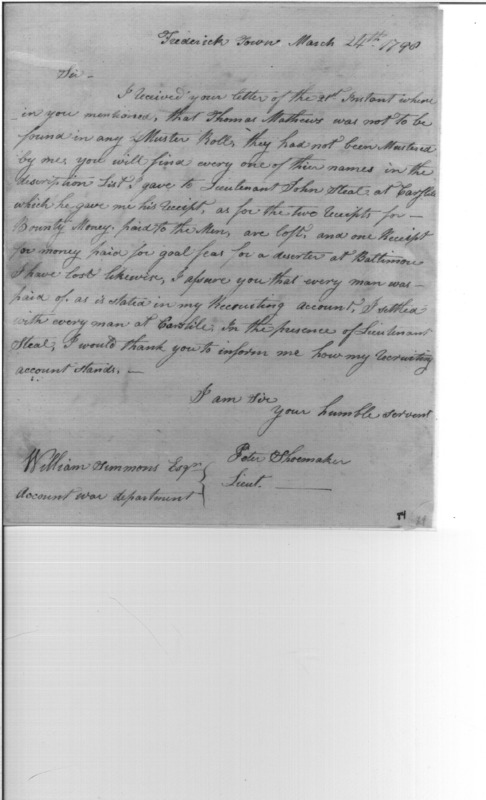 Frederick Town March 24th 1798
Sir -
I received your letter of the 21st Instant where
in you mentioned, that Thomas Mathews was not to be
found in any Muster Roll, they had not been Mustered
by me, you will find every one of their names in the
description List, I gave to Lieutenant John Steal at Carslile
which he gave me his Receipt, as for the two Receipts for -
Bounty Money. paid to the Men, are lost, and one Receipt
for money paid for goal fees for a deserter at Baltimore
I have lost likewise, I assure you that every man was -
paid of, as is stated in my Recruiting account, I settled
with every man at Carslile, In the presence of Lieutenant
Steal, I would thank you to inform me how my recruiting
account stands. -
I am Sir
your humble servent
Peter Shoemaker
Lieut.
William Simmons Esqr
Account war department